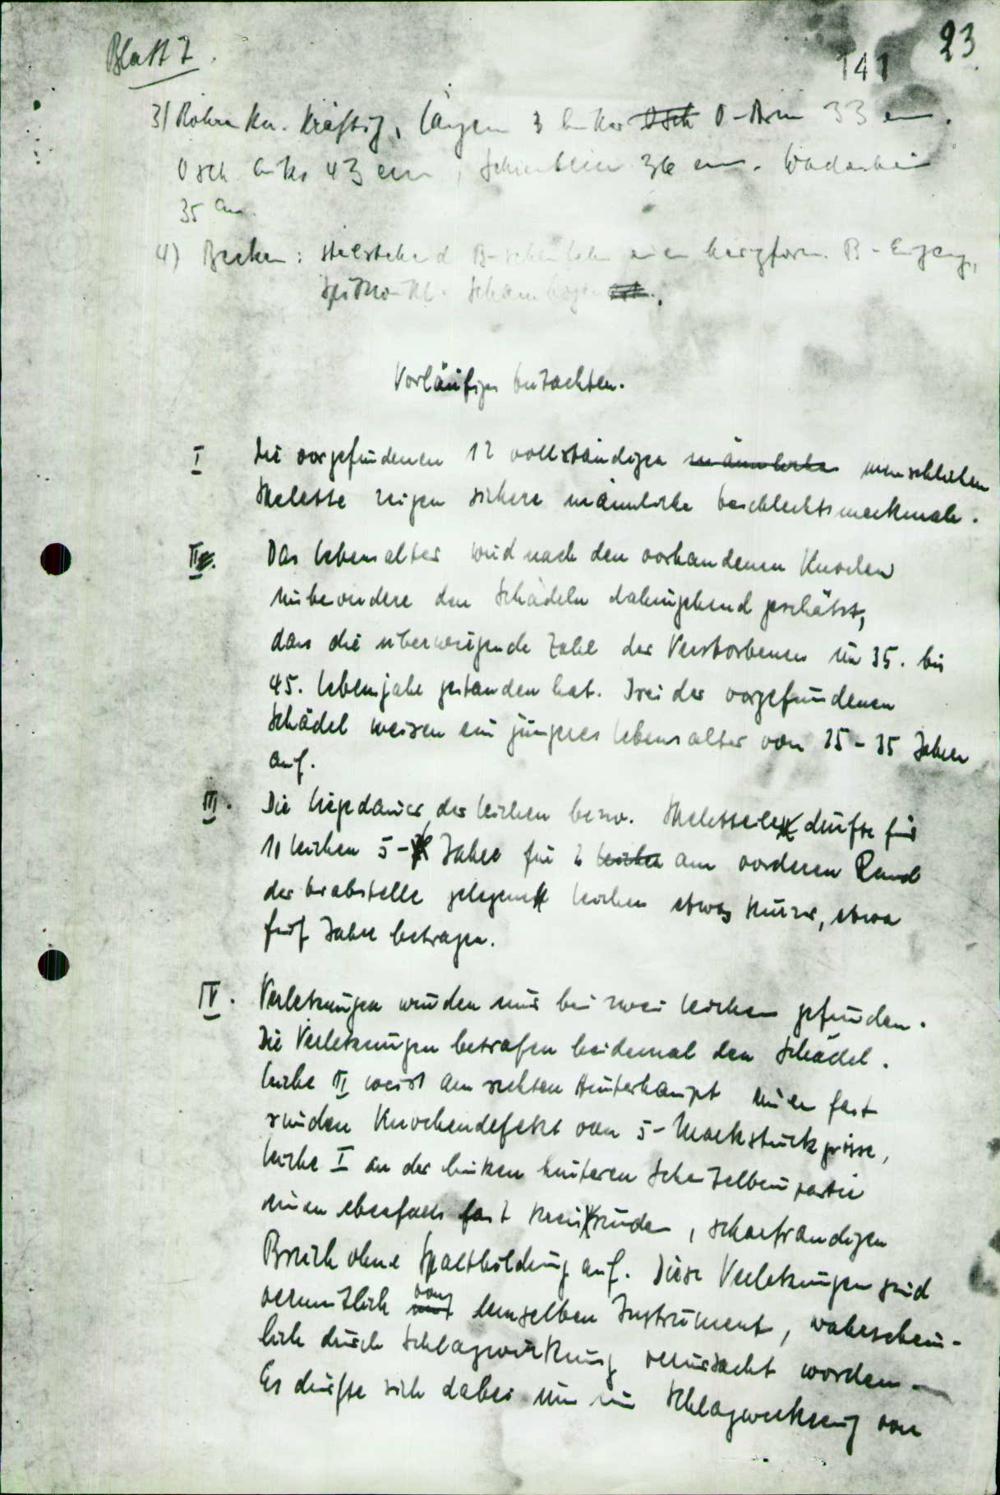 Blatt 7.
141
23
3) Röhrenkn. kräftig, Längen: linker Osch O-Arm 33 cm.
Osch links 43 cm, Schienbein 36 cm. Wadenbein
35 cm.
4) Becken: steilstehend herzförm. B-Eingang,
Schambogen
Vorläufiges Gutachten.
I Die vorgefundenen 12 vollständigen männlichen menschlichen
Skelette zeigen sichere männliche Geschlechtsmerkmale.
II. Das Lebensalter wird nach den vorhandenen Knochen
insbesondere den Schädeln dahingehend geschätzt,
dass die überwiegende Zahl der Verstorbenen im 35. bis
45. Lebensjahr gestanden hat. Drei der vorgefundenen
Schädel weisen ein jüngeres Lebensalter von 25-35 Jahren
auf.
III. Die Liegedauer der Leichen bezw. Skelettteile dürfte für
10 Leichen 5- Jahre für 2 Leichen am vorderen Rand
der Grabstelle gelegene Leichen etwas kürzer, etwa
fünf Jahre betragen.
IV. Verletzungen wurden nur bei zwei Leichen gefunden.
Die Verletzungen betrafen beidemal den Schädel.
Leiche II weist am rechten Hinterhaupt einen fast
runden Knochendefekt von 5-Markstückgrösse,
Leiche I an der linken hinteren Scheitelbeinpartie
einen ebenfalls fast kreisrunden, scharfrandigen
Bruch ohne Spaltbildung auf. Diese Verletzungen sind
vermutlich von demselben Instrument, wahrschein-
lich durch Schlagwirkung verursacht worden.
Es dürfte sich dabei um ein Schlagwerkzeug von